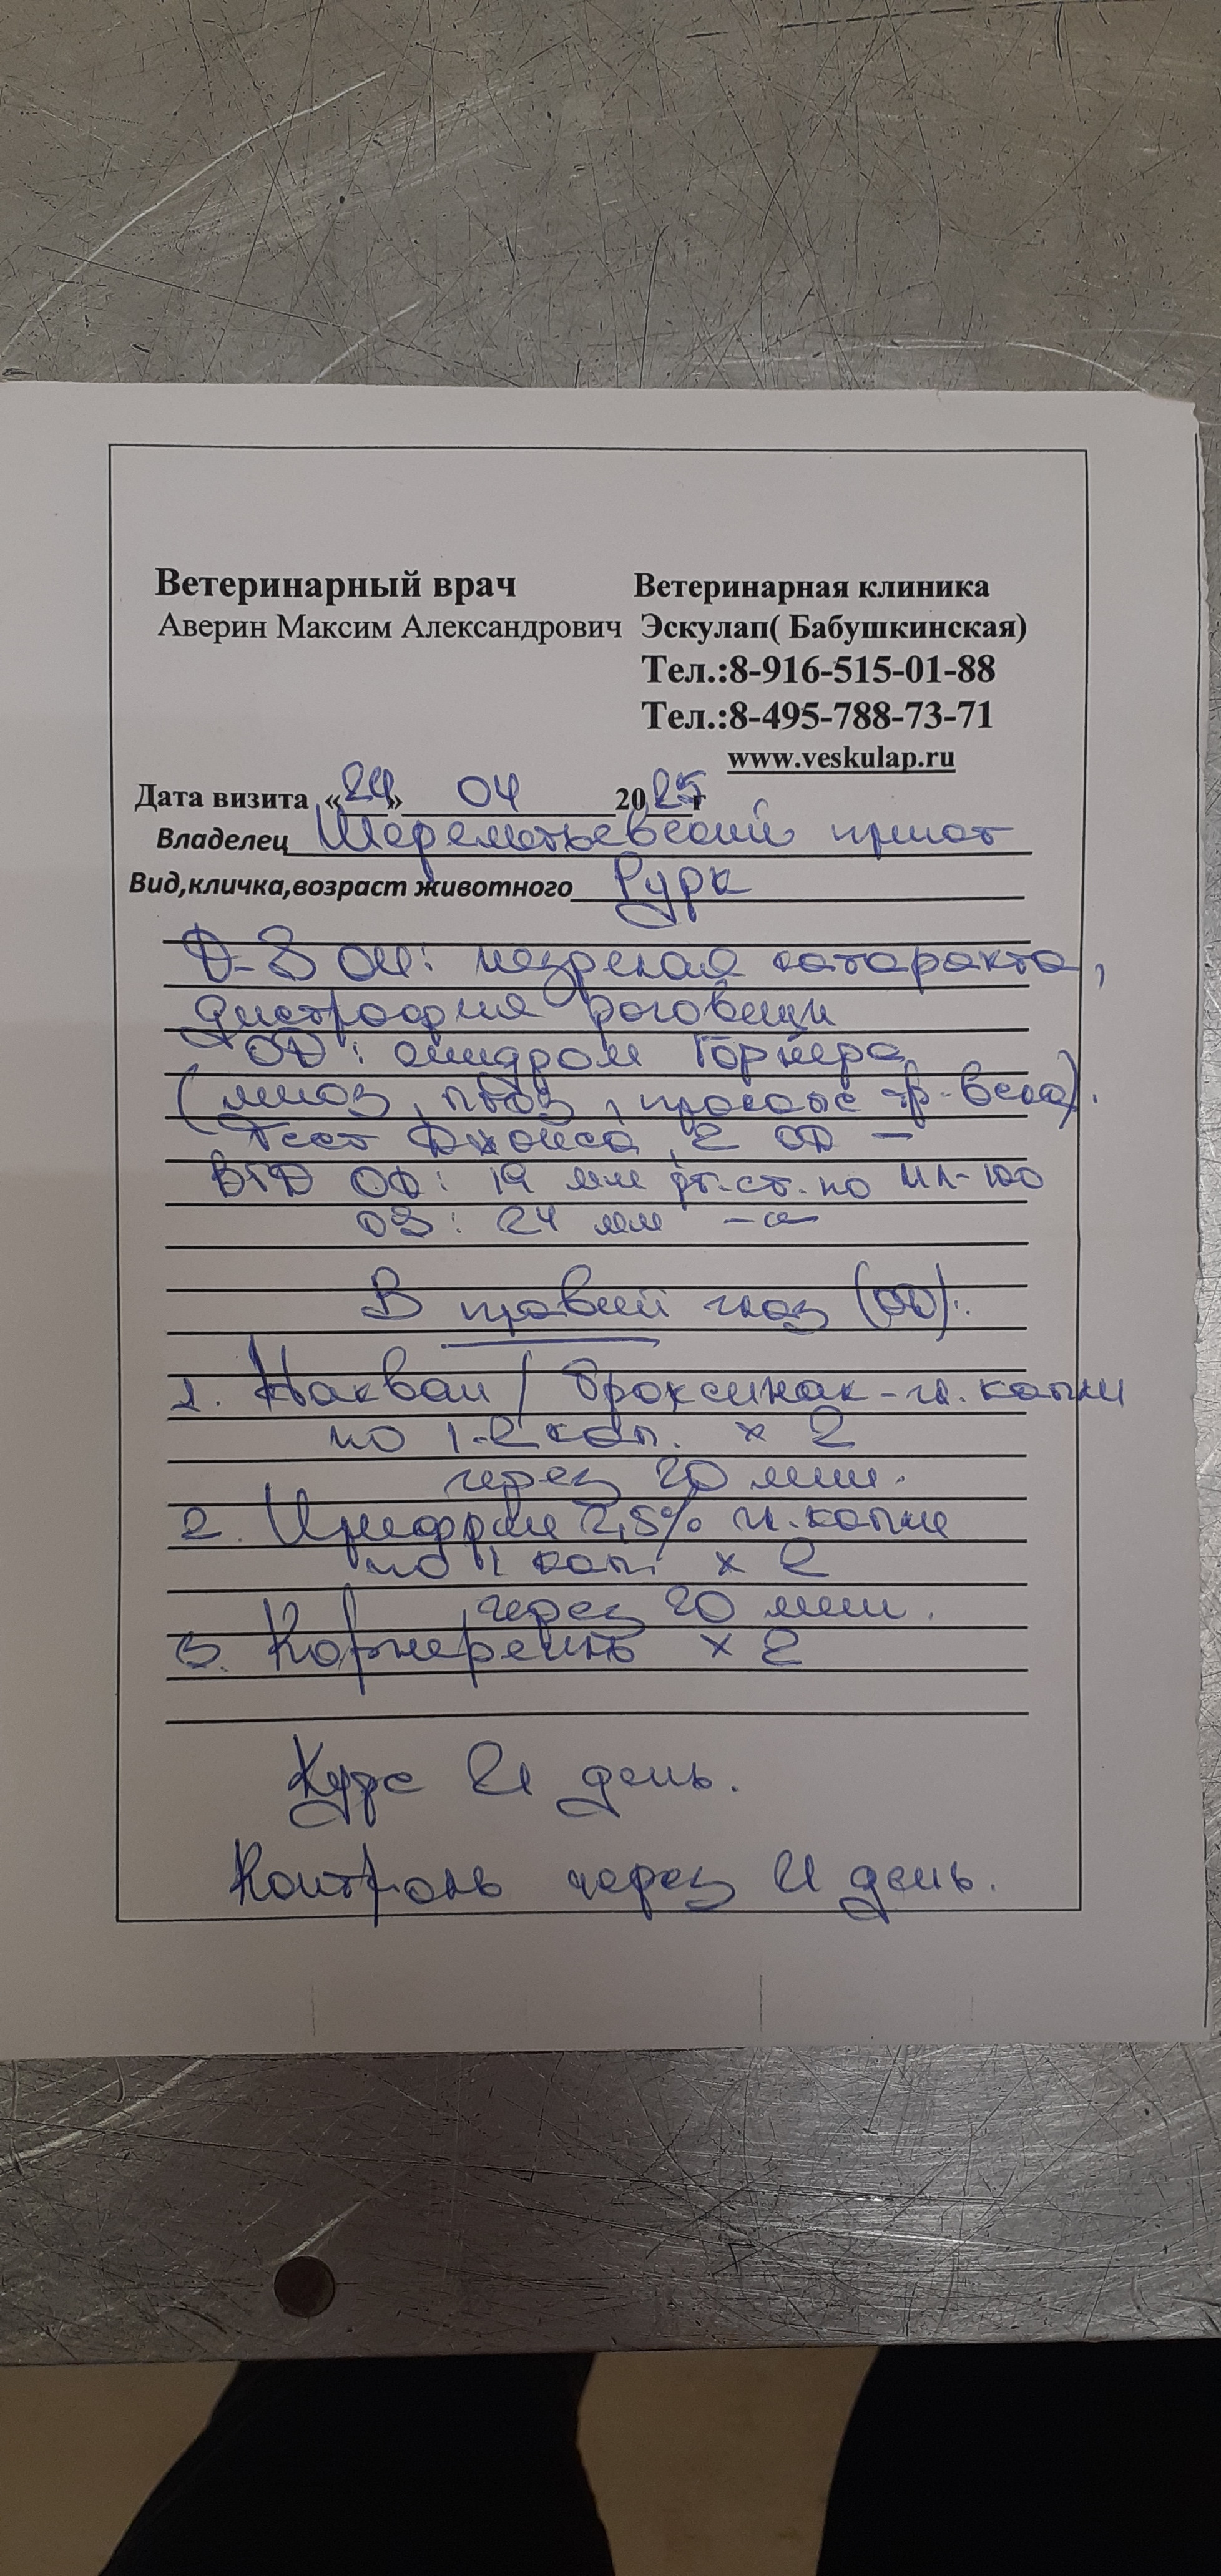 Ветеринарный врач
Аверин Максим Александрович
Ветеринарная клиника
Эскулап( Бабушкинская)
Тел.:8-916-515-01-88
Тел.:8-495-788-73-71
www.veskulap.ru
Дата визита «24» 04 2025г
Владелец Шереметьевский приют
Вид,кличка,возраст животного Рурк
D-S OU: незрелая катаракта,
дистрофия роговицы
OD: синдром Горнера
(миоз, птоз, пролапс тр. века).
Тест Джонса 2 OD –
ВГД OD: 19 мм рт.ст. по ИЛ-100
OS: 24 мм –"–
В правый глаз (OD):
1. Накван / Броксинак - гл. капли
по 1-2 кап. x 2
через 20 мин.
2. Ирифрин 2,5% гл. капли
по 1 кап. x 2
через 20 мин.
3. Корнерегель x 2
Курс 21 день.
Контроль через 21 день.